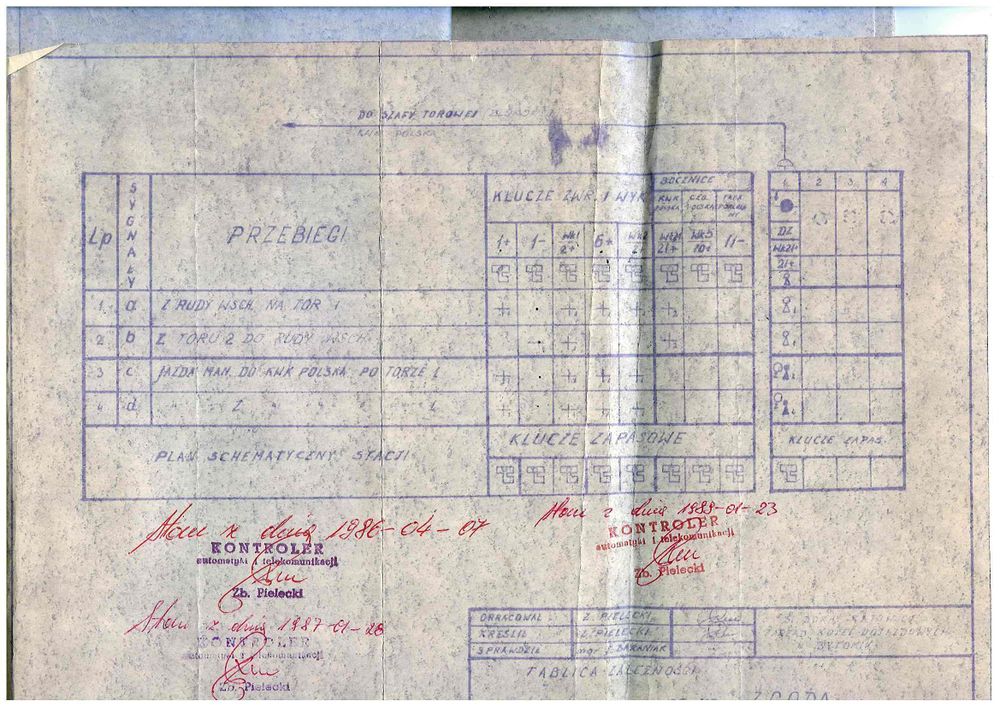 DO SZAFY TOROWEJ
KWK POLSKA
Lp
SYGNAŁY
PRZEBIEGI
KLUCZE ZWR. I WYK
BOCZNICE
KWK POLSKA
1 2 3 4
1+ 1- Wk1 2+ 6+ Wk21 21+ Wk5 10+ 11-
DZ
Wk21
21+
1. a Z RUDY WSCH. NA TOR 1
2 b Z TORU 2 DO RUDY WSCH.
3 c JAZDA MAN. DO KWK POLSKA PO TORZE 1
4 d " " Z " " " " 1
PLAN SCHEMATYCZNY STACJI
KLUCZE ZAPASOWE
KLUCZE ZAPAS.
Stan z dnia 1986-04-07
KONTROLER
automatyki i telekomunikacji
Zb. Pielecki
Stan z dnia 1989-01-23
KONTROLER
automatyki i telekomunikacji
Zb. Pielecki
Stan z dnia 1987-01-28
KONTROLER
automatyki i telekomunikacji
Zb. Pielecki
OPRACOWAŁ Z. PIELECKI
KREŚLIŁ Z. PIELECKI
SPRAWDZIŁ mgr J. BARANIAK
KOLEI DOJAZDOWYCH
W BYTOMIU
TABLICA ZALEŻNOŚCI
ZGODA